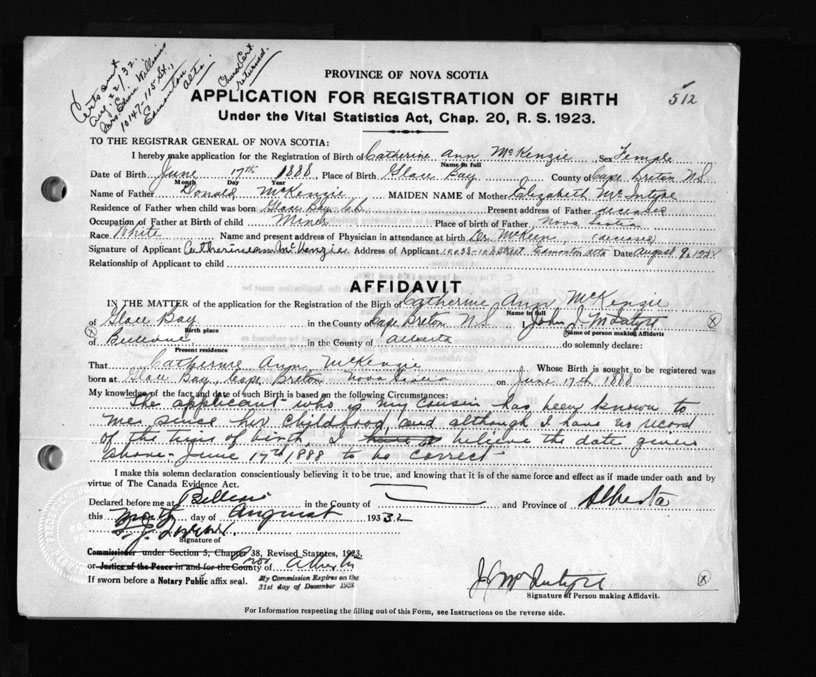 Certs sent
Aug. 22/32.
Mrs. Edwin Williams
10147-115 St.,
Edmonton
Alta.
Church Cert
returned.
512
PROVINCE OF NOVA SCOTIA
APPLICATION FOR REGISTRATION OF BIRTH
Under the Vital Statistics Act, Chap. 20, R. S. 1923.
TO THE REGISTRAR GENERAL OF NOVA SCOTIA:
I hereby make application for the Registration of Birth of Catherine Ann McKenzie Sex Female
Name in full
Date of Birth June 17th 1888 Place of Birth Glace Bay County of Cape Breton N.S.
Month Day Year
Name of Father Donald McKenzie MAIDEN NAME of Mother Elizabeth McIntyre
Residence of Father when child was born Glace Bay C.B. Present address of Father deceased
Occupation of Father at Birth of child Miner Place of birth of Father Nova Scotia
Race White Name and present address of Physician in attendance at birth Dr. McKeen (deceased)
Signature of Applicant Catherine Ann McKenzie Address of Applicant Edmonton Alta Date August 9
Relationship of Applicant to child
AFFIDAVIT
IN THE MATTER of the application for the Registration of the Birth of Catherine Ann McKenzie
Name in full
of Glace Bay in the County of Cape Breton N.S. I, John J McIntyre
Birth place Name of person making Affidavit
of Bellevue in the County of Alberta do solemnly declare:
Present residence
That Catherine Ann McKenzie Whose Birth is sought to be registered was
born at Glace Bay, Cape Breton Nova Scotia on June 17th 1888
My knowledge of the fact and date of such Birth is based on the following Circumstances:
The applicant who is my cousin has been known to
me since her childhood, and although I have no record
of the time of birth, I believe the date given
above - June 17th 1888 to be correct
I make this solemn declaration conscientiously believing it to be true, and knowing that it is of the same force and effect as if made under oath and by
virtue of The Canada Evidence Act.
Declared before me at Bellevue in the County of and Province of Alberta
this day of August 1932
Signature of
Commissioner under Section 5, Chapter 38, Revised Statutes, 1923,
or Justice of the Peace in and for the County of Alberta
If sworn before a Notary Public affix seal.
My Commission Expires on the
31st day of December 1932
J J McIntyre
Signature of Person making Affidavit.
For Information respecting the filling out of this Form, see Instructions on the reverse side.